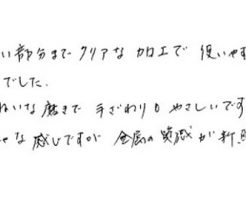 い部分まで クリアな 加工で 使いやす
でした.
ねいな磨きで 手ざわりも やさしいです
ゃな 感じですが 金属の 質感 が 斬